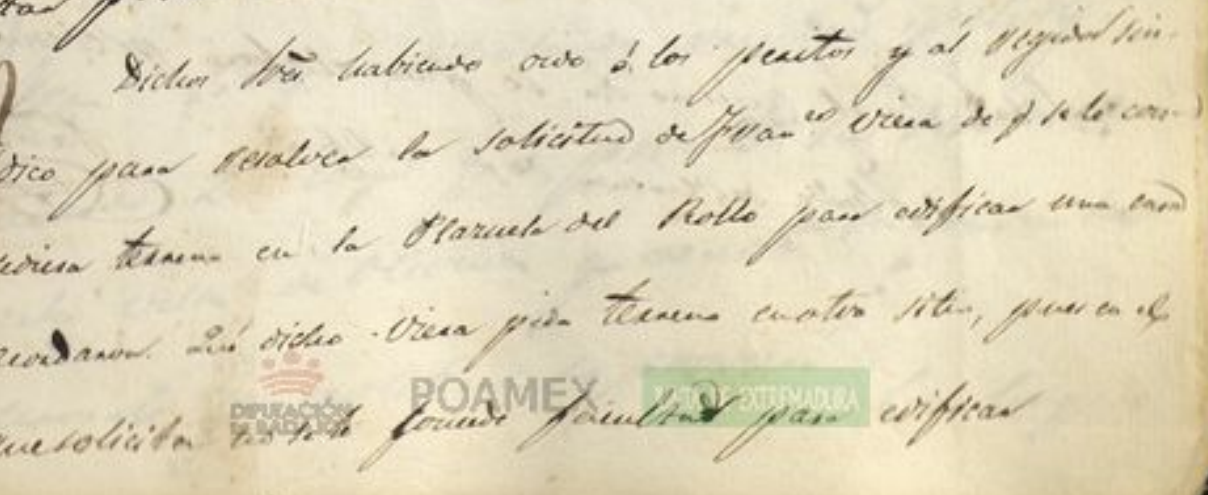 Dichos Sres habiendo oido á los peritos y al Regidor Sin-
dico para resolver la solicitud de Franco Viera de q se le con-
cediera terreno en la Plazuela del Rollo para edificar una casa
acordaron: Qué dicho Viera pida terreno en otro sitio, pues en el
que solicita no se le concede facultad para edificar
DIPUTACIÓN
DE BADAJOZ
POAMEX
JUNTA DE EXTREMADURA